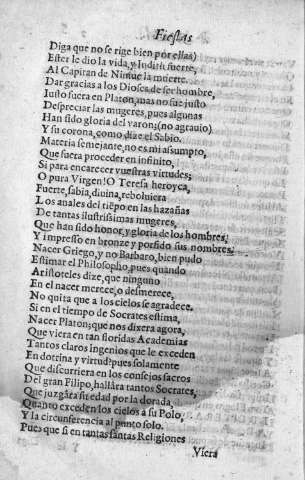 Fiestas
Diga que no se rige bien por ellas)
Ester le dio la vida, y Iudith fuerte,
Al Capitan de Niniue la muerte.
Dar gracias a los Dioses de ser hombre,
Iusto fuera en Platon, mas no fue justo
Despreciar las mugeres, pues algunas
Han sido gloria del varon; (no agrauio)
Y su corona, como dize el Sabio.
Materia semejante, no es mi assumpto,
Que fuera proceder en infinito,
Si para encarecer vuestras virtudes;
O pura Virgen! O Teresa heroyca,
Fuerte, sabia, diuina, reboluiera
Los anales del tiẽpo en las hazañas
De tantas ilustrissimas mugeres,
Que han sido honor, y gloria de los hombres,
Y impresso en bronze y porfido sus nombres,
Nacer Griego, y no Barbaro, bien pudo
Estimar el Philosopho, pues quando
Aristoteles dize, que ninguno
En el nacer merece, o desmerece,
No quita que a los cielos se agradece.
Si en el tiempo de Socrates estima,
Nacer Platon; que nos dixera agora,
Que viera en tan floridas Academias
Tantos claros ingenios que le exceden
En dotrina y virtud? pues solamente
Que discurriera en los consejos sacros
Del gran Filipo, hallàra tantos Socrates,
Que juzgàra su edad por la dorada,
Quanto exceden los cielos a su Polo,
Y la circunferencia al punto solo.
Pues que si en tantas santas Religiones
Viera